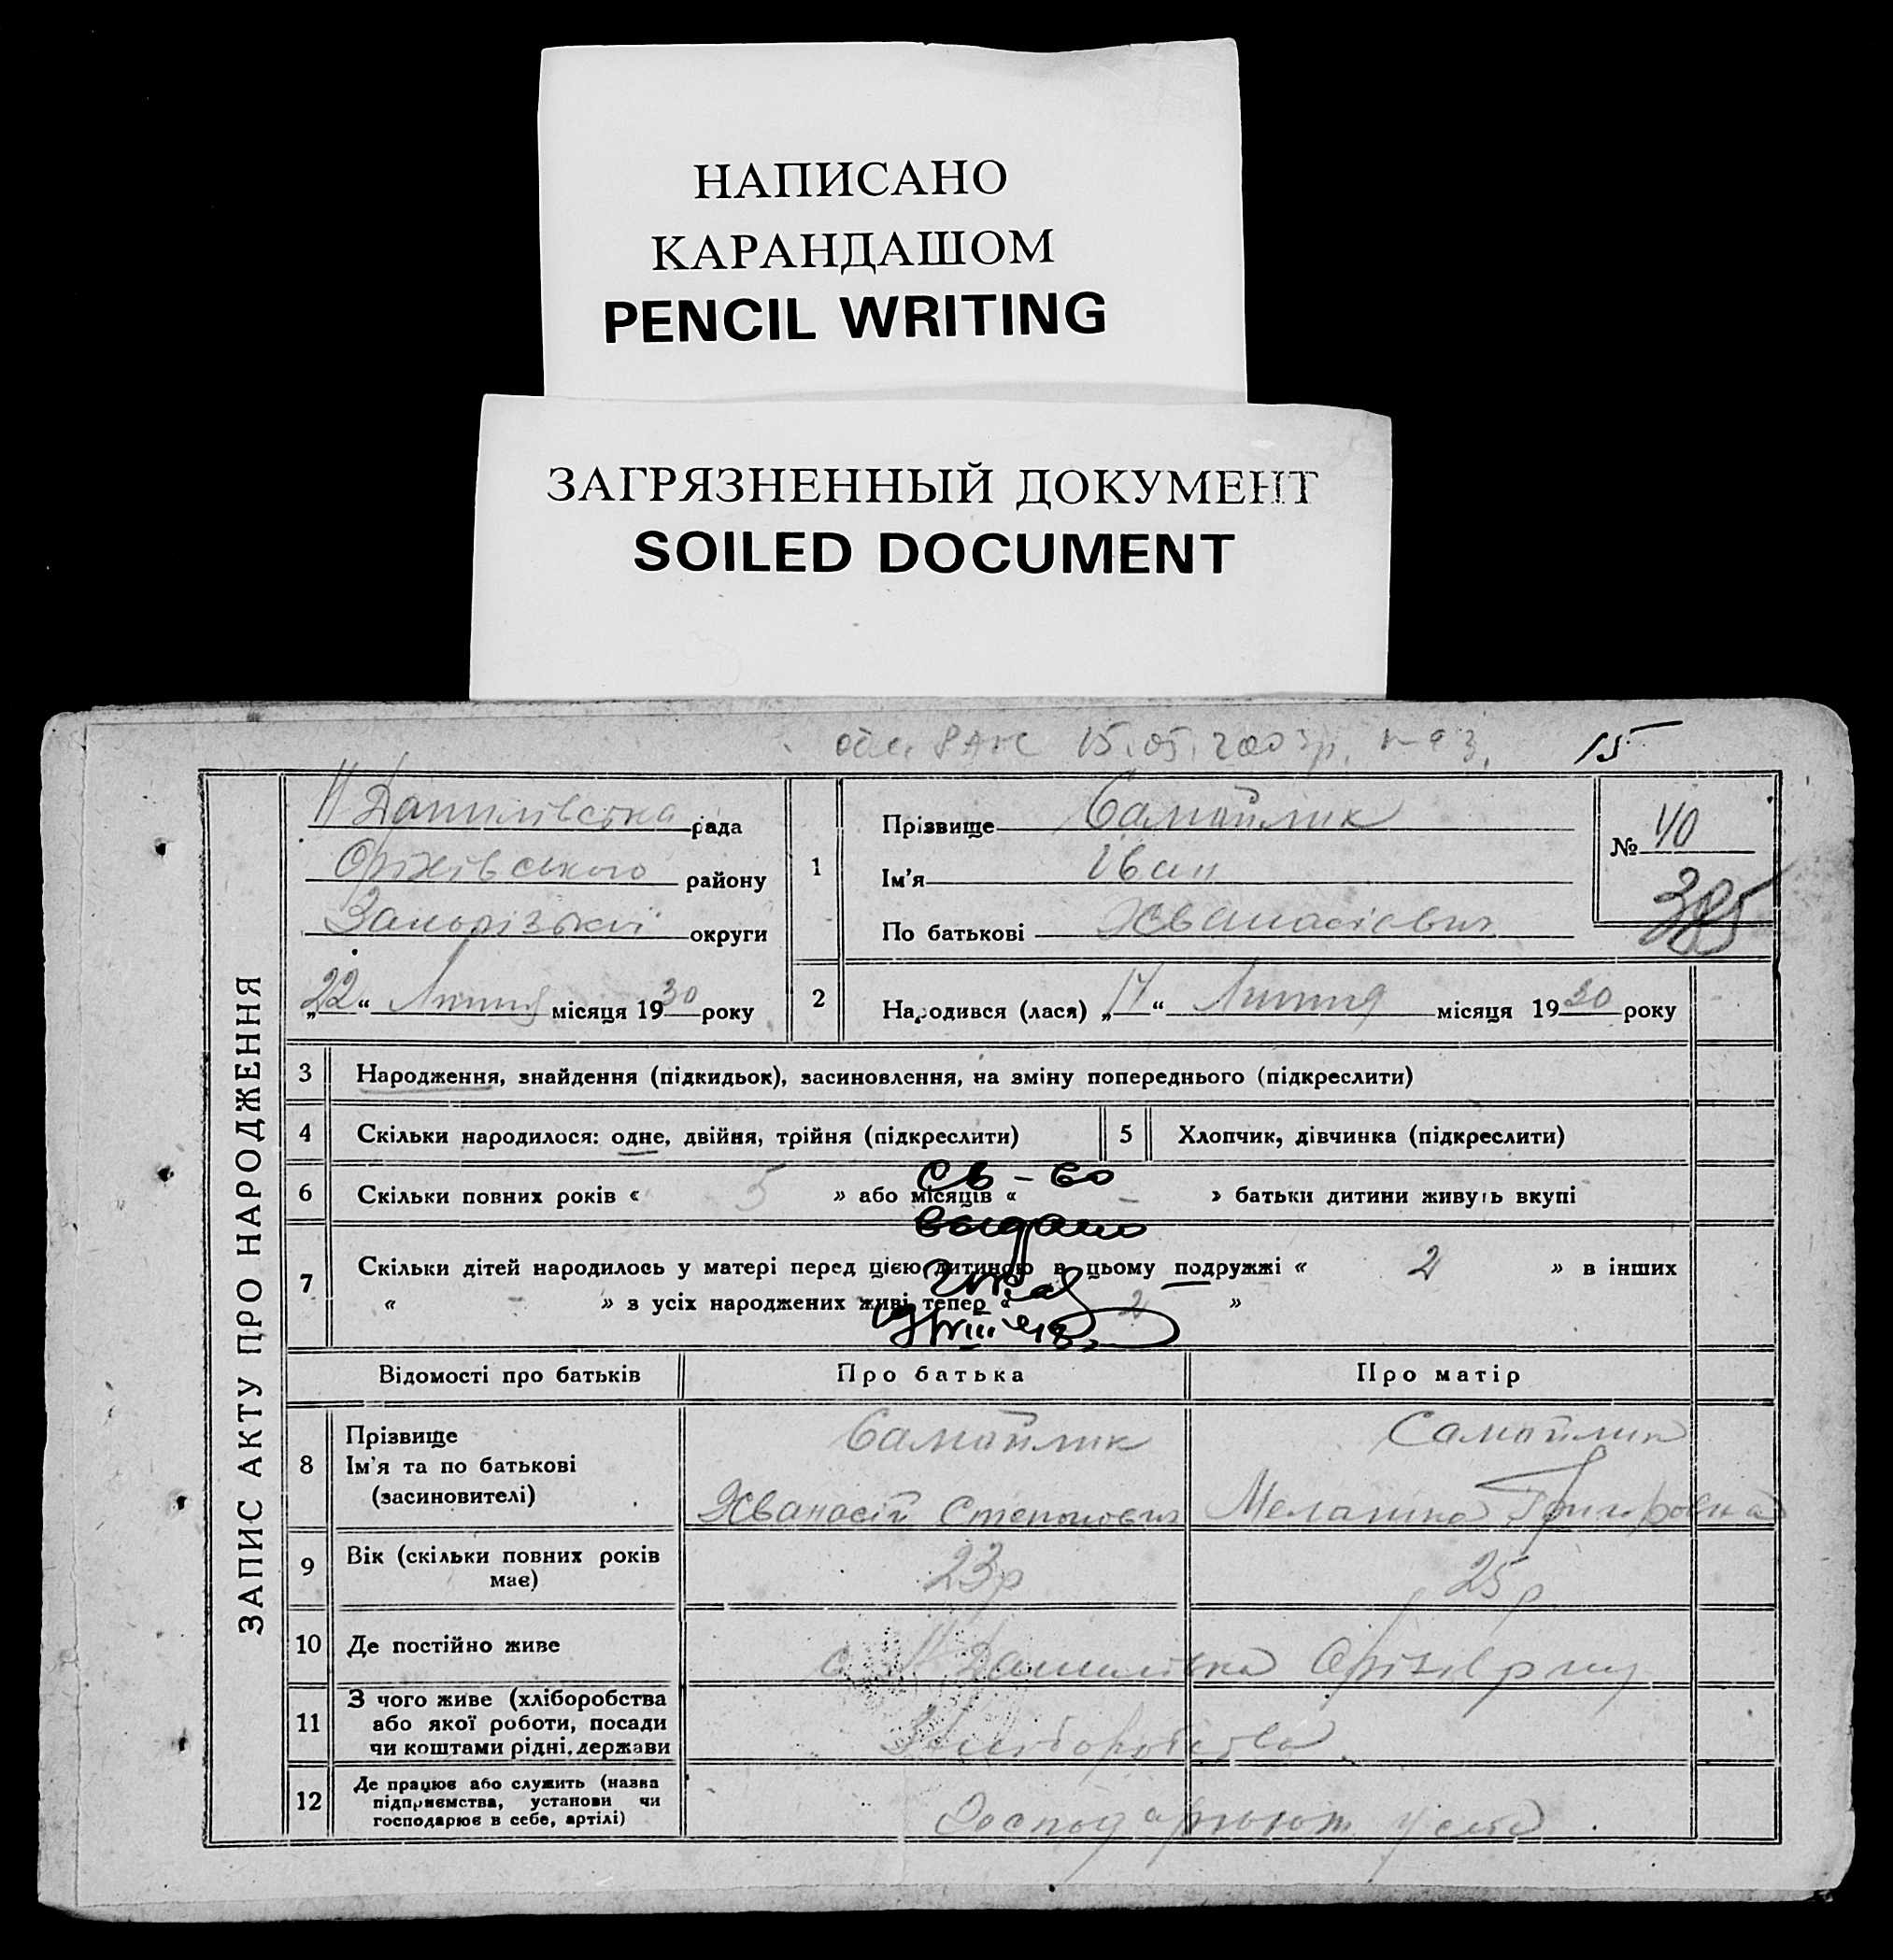 НАПИСАНО
КАРАНДАШОМ
PENCIL WRITING
ЗАГРЯЗНЕННЫЙ ДОКУМЕНТ
SOILED DOCUMENT
15.05.2003р. 15
ЗАПИС АКТУ ПРО НАРОДЖЕННЯ
Н Данилівська рада
Оріхівського району
Запорізької округи
„22“ Липня місяця 1930 року
1 Прізвище Самойлик
Ім'я Іван
По батькові Хванасієвич
№ 40
385
2 Народився (лася) „17“ Липня місяця 1930 року
3 Народження, знайдення (підкидьок), засиновлення, на зміну попереднього (підкреслити)
4 Скільки народилося: одне, двійня, трійня (підкреслити) 5 Хлопчик, дівчинка (підкреслити)
6 Скільки повних років « 5 » або місяців « - » батьки дитини живуть вкупі
св-во
выдано
7 Скільки дітей народилось у матері перед цією дитиною в цьому подружжі « 2 » в інших
« - » з усіх народжених живі тепер « 2 »
Відомості про батьків Про батька Про матір
8 Прізвище Самойлик Самойлик
Ім'я та по батькові
(засиновителі) Хванасій Степанович Меланка Григоровна
9 Вік (скільки повних років має) 23р 25р
10 Де постійно живе с. Н Данилівка Оріхів р ну
11 З чого живе (хліборобства
або якої роботи, посади
чи коштами рідні, держави Хліборобство
12 Де працює або служить (назва
підприємства, установи чи
господарює в себе, артілі) Господарюють у себе